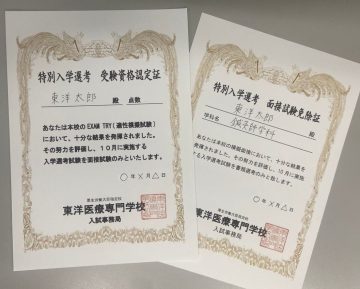 特別入学選考 受験資格認定証
東洋太郎 殿 点数
あなたは本校のEXAM TRY(適性模擬試験)
において、十分な結果を発揮されました。
その努力を評価し、10月に実施する
入学選考試験を面接試験のみといたします。
○年×月△日
厚生労働大臣指定校
東洋医療専門学校
入試事務局
特別入学選考 面接試験免除証
東洋太郎 殿
学科名 鍼灸師学科
あなたは本校の模擬面接において、十分な結果を
発揮されました。その努力を評価し、10月に実施
する入学選考試験を書類選考のみといたします。
○年×月△日
厚生労働大臣指定校
東洋医療専門学校
入試事務局